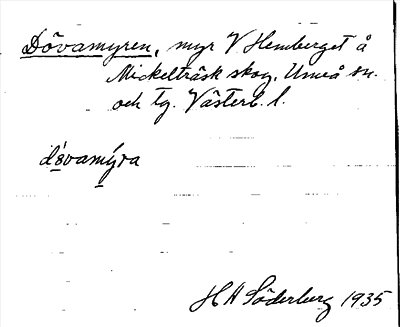 Dövamyren, myr V Hemberget å
Mickelträsk skog, Umeå sn.
och tg. Västerb. l.
dövamýra
H A Söderberg 1935